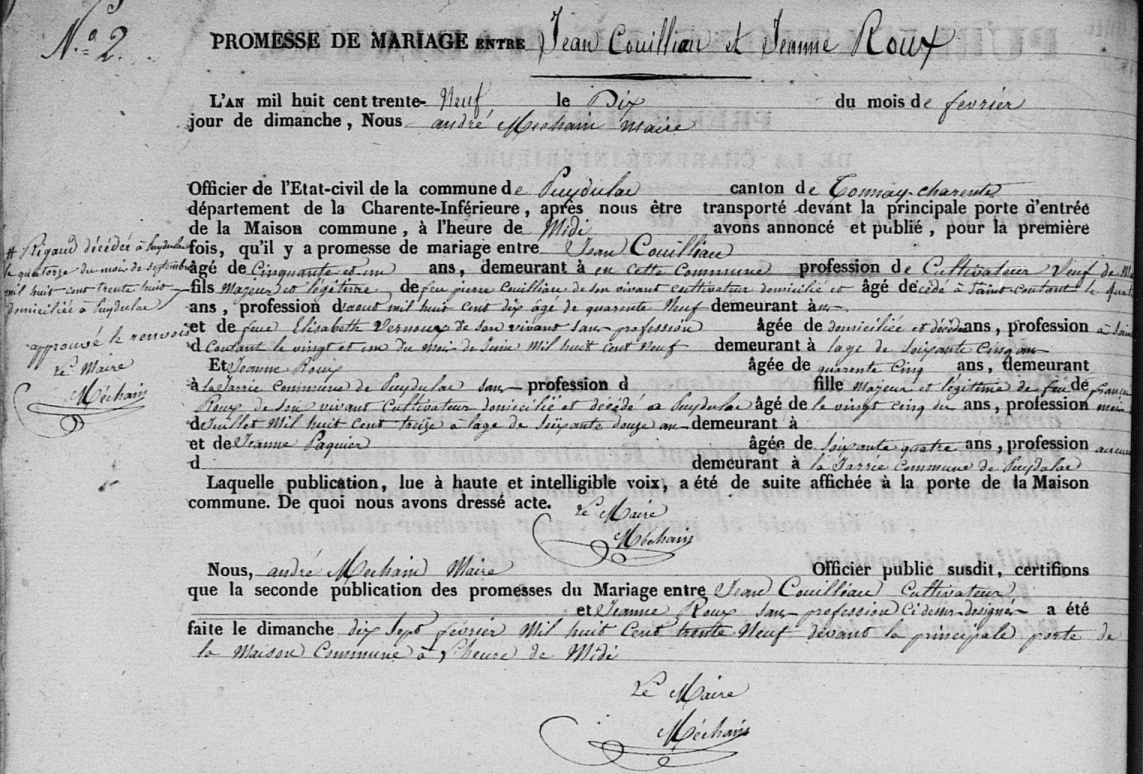 N.o 2.
PROMESSE DE MARIAGE ENTRE Jean Couilliau et Jeanne Roux
L'AN mil huit cent trente- Neuf le Dix du mois de fevrier
jour de dimanche, Nous andré Mechain maire
Officier de l'Etat-civil de la commune de Puydulac canton de Tonnay-charente
département de la Charente-Inférieure, après nous être transporté devant la principale porte d'entrée
de la Maison commune, à l'heure de Midi avons annoncé et publié, pour la première
fois, qu'il y a promesse de mariage entre Jean Couilliau
âgé de Cinquante et un ans, demeurant à en cette Commune profession de Cultivateur Veuf de
fils Majeur et légitime de feu pierre Couilliau de son vivant cultivateur domicilié et âgé decédé à saint-coutant le
ans, profession d'aout mil huit cent dix âgé de quarente Neuf demeurant à
et de feue Elisabeth Vernoux de son vivant sans profession âgée de domiciliée et décédée ans, profession à saint
d Coutant le vingt et un du mois de Juin Mil huit cent Neuf demeurant à l'age de soixante cinq ans
Et Jeanne Roux âgée de quarente Cinq ans, demeurant
à la Jarrie Commune de Puydulac sans profession d fille Majeur et légitime de feu de françois
Roux de son vivant Cultivateur domicilié et décédé a Puydulac âgé de le vingt cinq du ans, profession mois
de Juillet Mil huit Cent treize a lage de soixante douze ans demeurant à
et de Jeanne Paquier âgée de soixante quatre ans, profession aucune
d demeurant à la Jarrie Commune de Puydulac
Laquelle publication, lue à haute et intelligible voix, a été de suite affichée à la porte de la Maison
commune. De quoi nous avons dressé acte.
Le Maire
Méchain
Nous, andré Mechain Maire Officier public susdit, certifions
que la seconde publication des promesses du Mariage entre Jean Couilliau Cultivateur
et Jeanne Roux sans profession Ci dessus designés a été
faite le dimanche dix Sept fevrier Mil huit Cent trente Neuf devant la principale porte de
la Maison Commune à l'heure de Midi
Le Maire
Méchain
# Rigaud décédée à Puydulac
le quatorze du mois de septembre
mil huit cent trente huit
domiciliée à Puydulac
approuvé le renvoi
Le Maire
Méchain